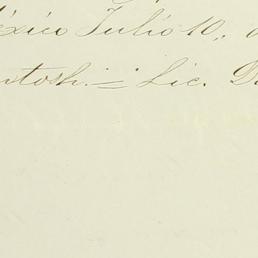 éxico Julio 10,
ntosh. = Lic.